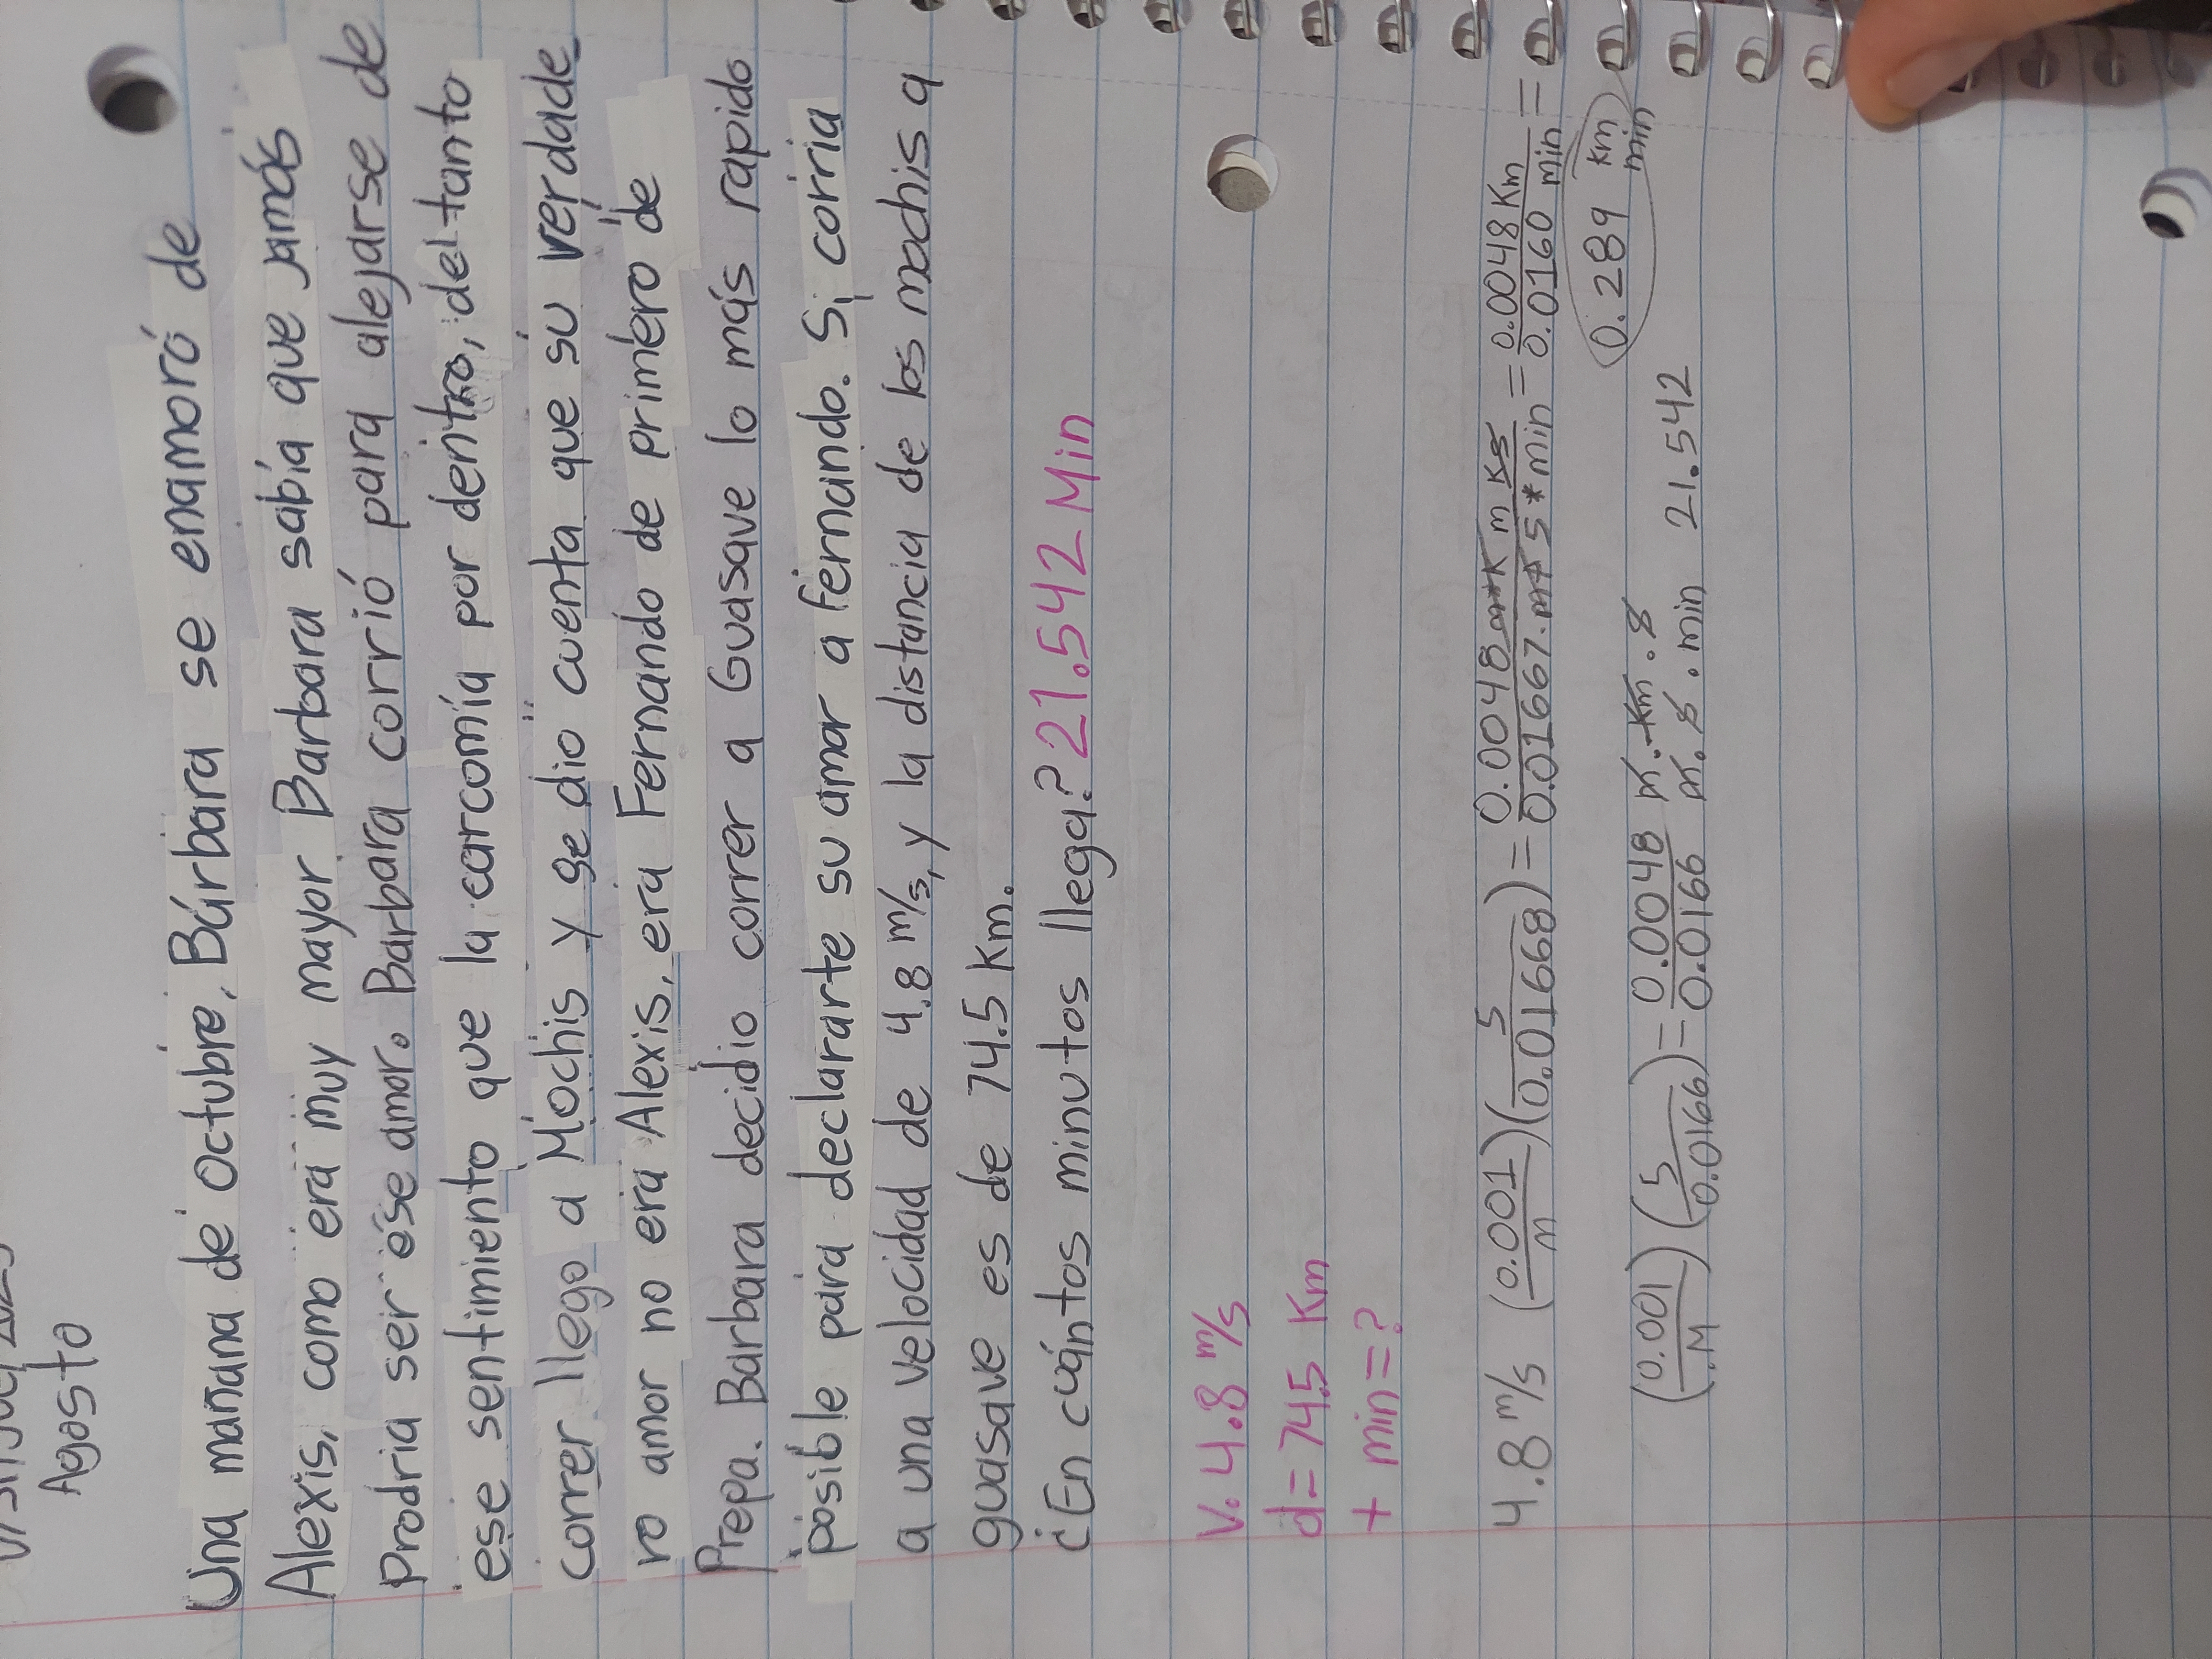 Agosto
Una mañana de octubre, Bárbara se enamoró de
Alexis, como era muy mayor Barbara sabía que jamás
Prodria ser ése amor. Barbara corrió para alejarse de
ese sentimiento que la carcomía por dentro, del tanto
correr llego a Mochis y se dio cuenta que su verdade
ro amor no era Alexis, era Fernando de primero de
Prepa. Barbara decidio correr a Guasave lo más rapido
posible para declararte su amar a fernando. Si corria
a una velocidad de 4.8 m/s, y la distancia de los mochis a
guasave es de 74.5 Km.
¿En cuántos minutos llega? 21.542 Min
V. 4.8 m/s
d= 74.5 Km
t min=?
4.8 m/s (0.001/m)(5/0.01668) = 0.0048 m*K m Ks/0.01667.m*5*min = 0.0048 Km/0.0160 min =
0.289 km/min
(0.001/M)(5/0.0166) = 0.0048/0.0166 m.km.s/m.s.min 21.542